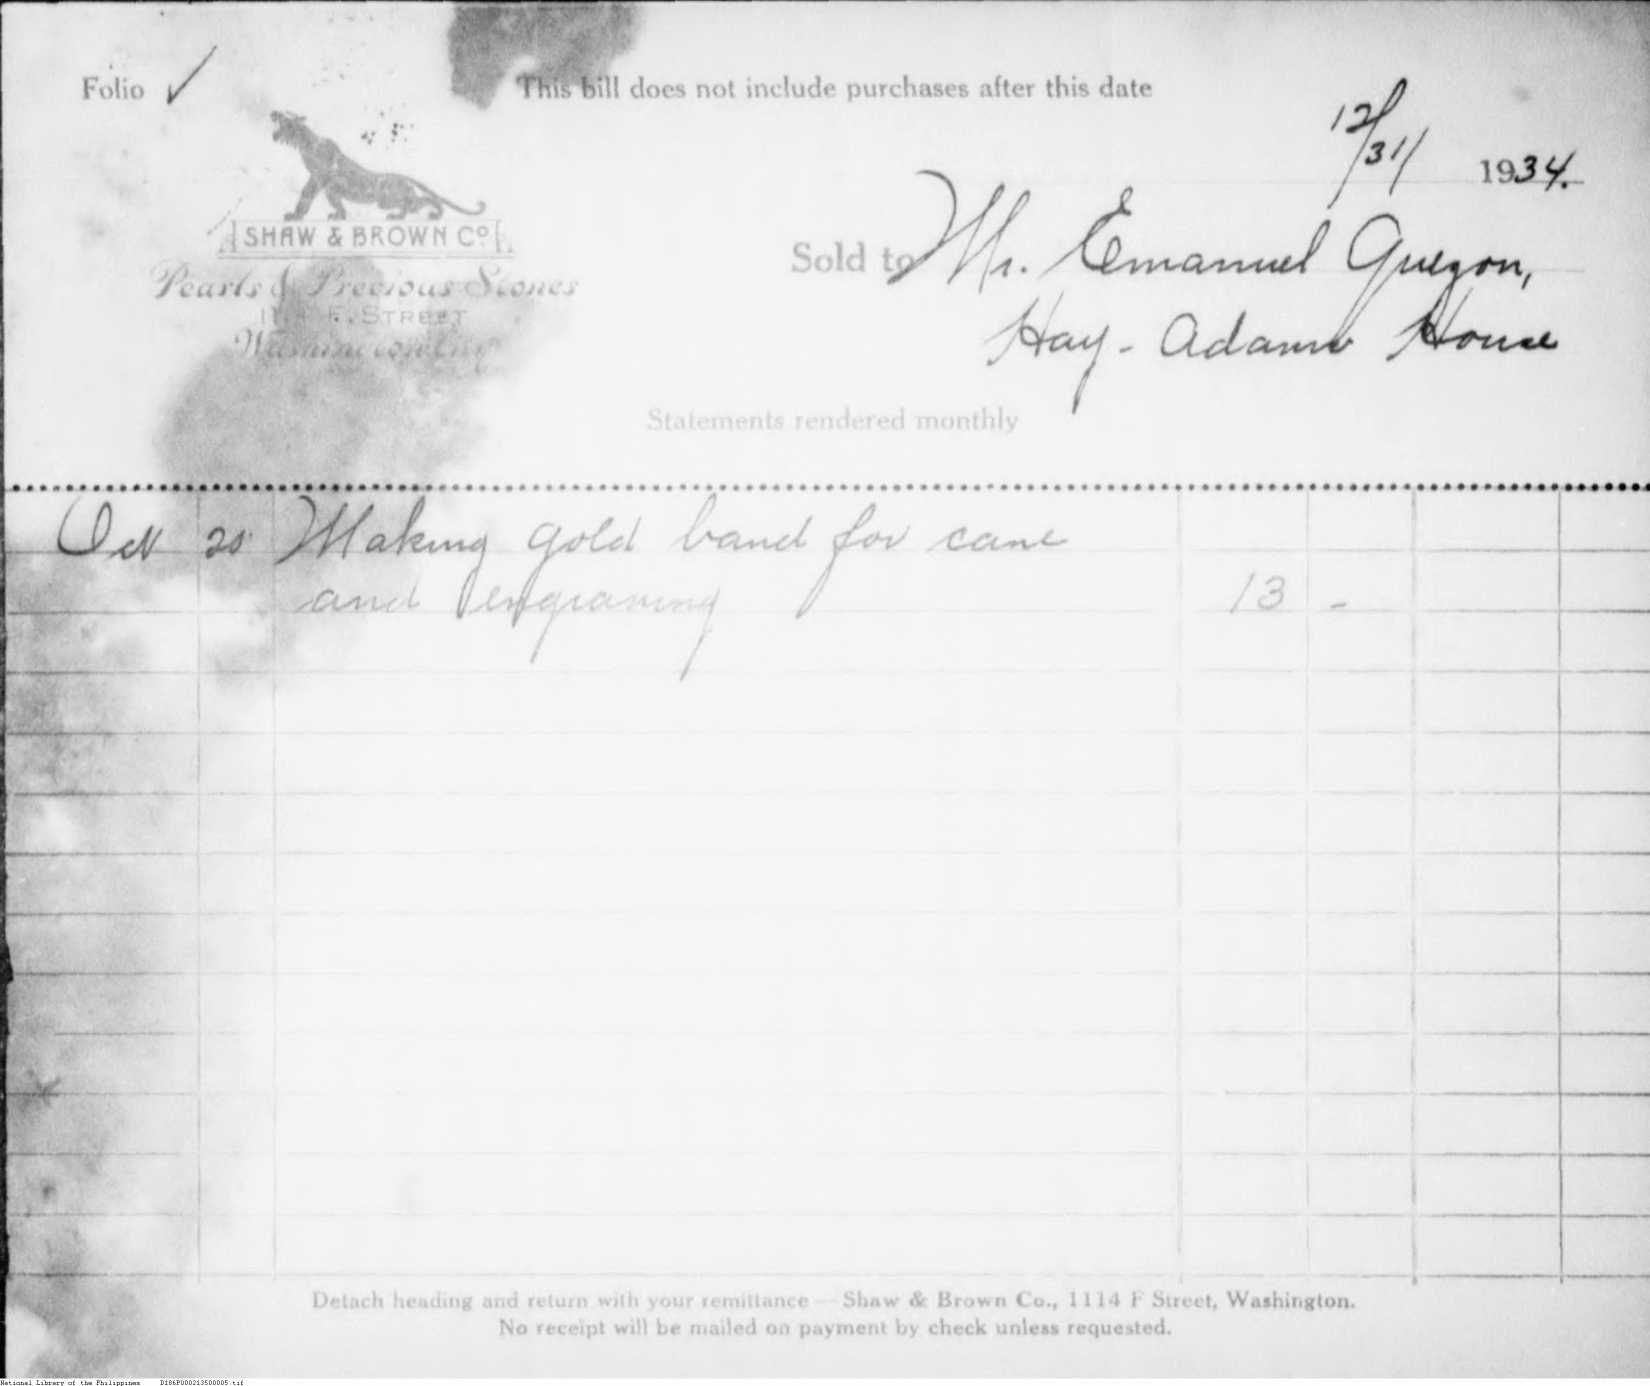 Folio ✓
This bill does not include purchases after this date
12/31/ 1934.
SHAW & BROWN Co
Pearls & Precious Stones
1114 F. STREET
Washington City
Sold to Mr. Emanuel Quezon,
Hay-Adams House
Statements rendered monthly
Oct 20 Making gold band for cane
and engraving 13 -
Detach heading and return with your remittance — Shaw & Brown Co., 1114 F Street, Washington.
No receipt will be mailed on payment by check unless requested.
National Library of the Philippines D186P000213500005.tif